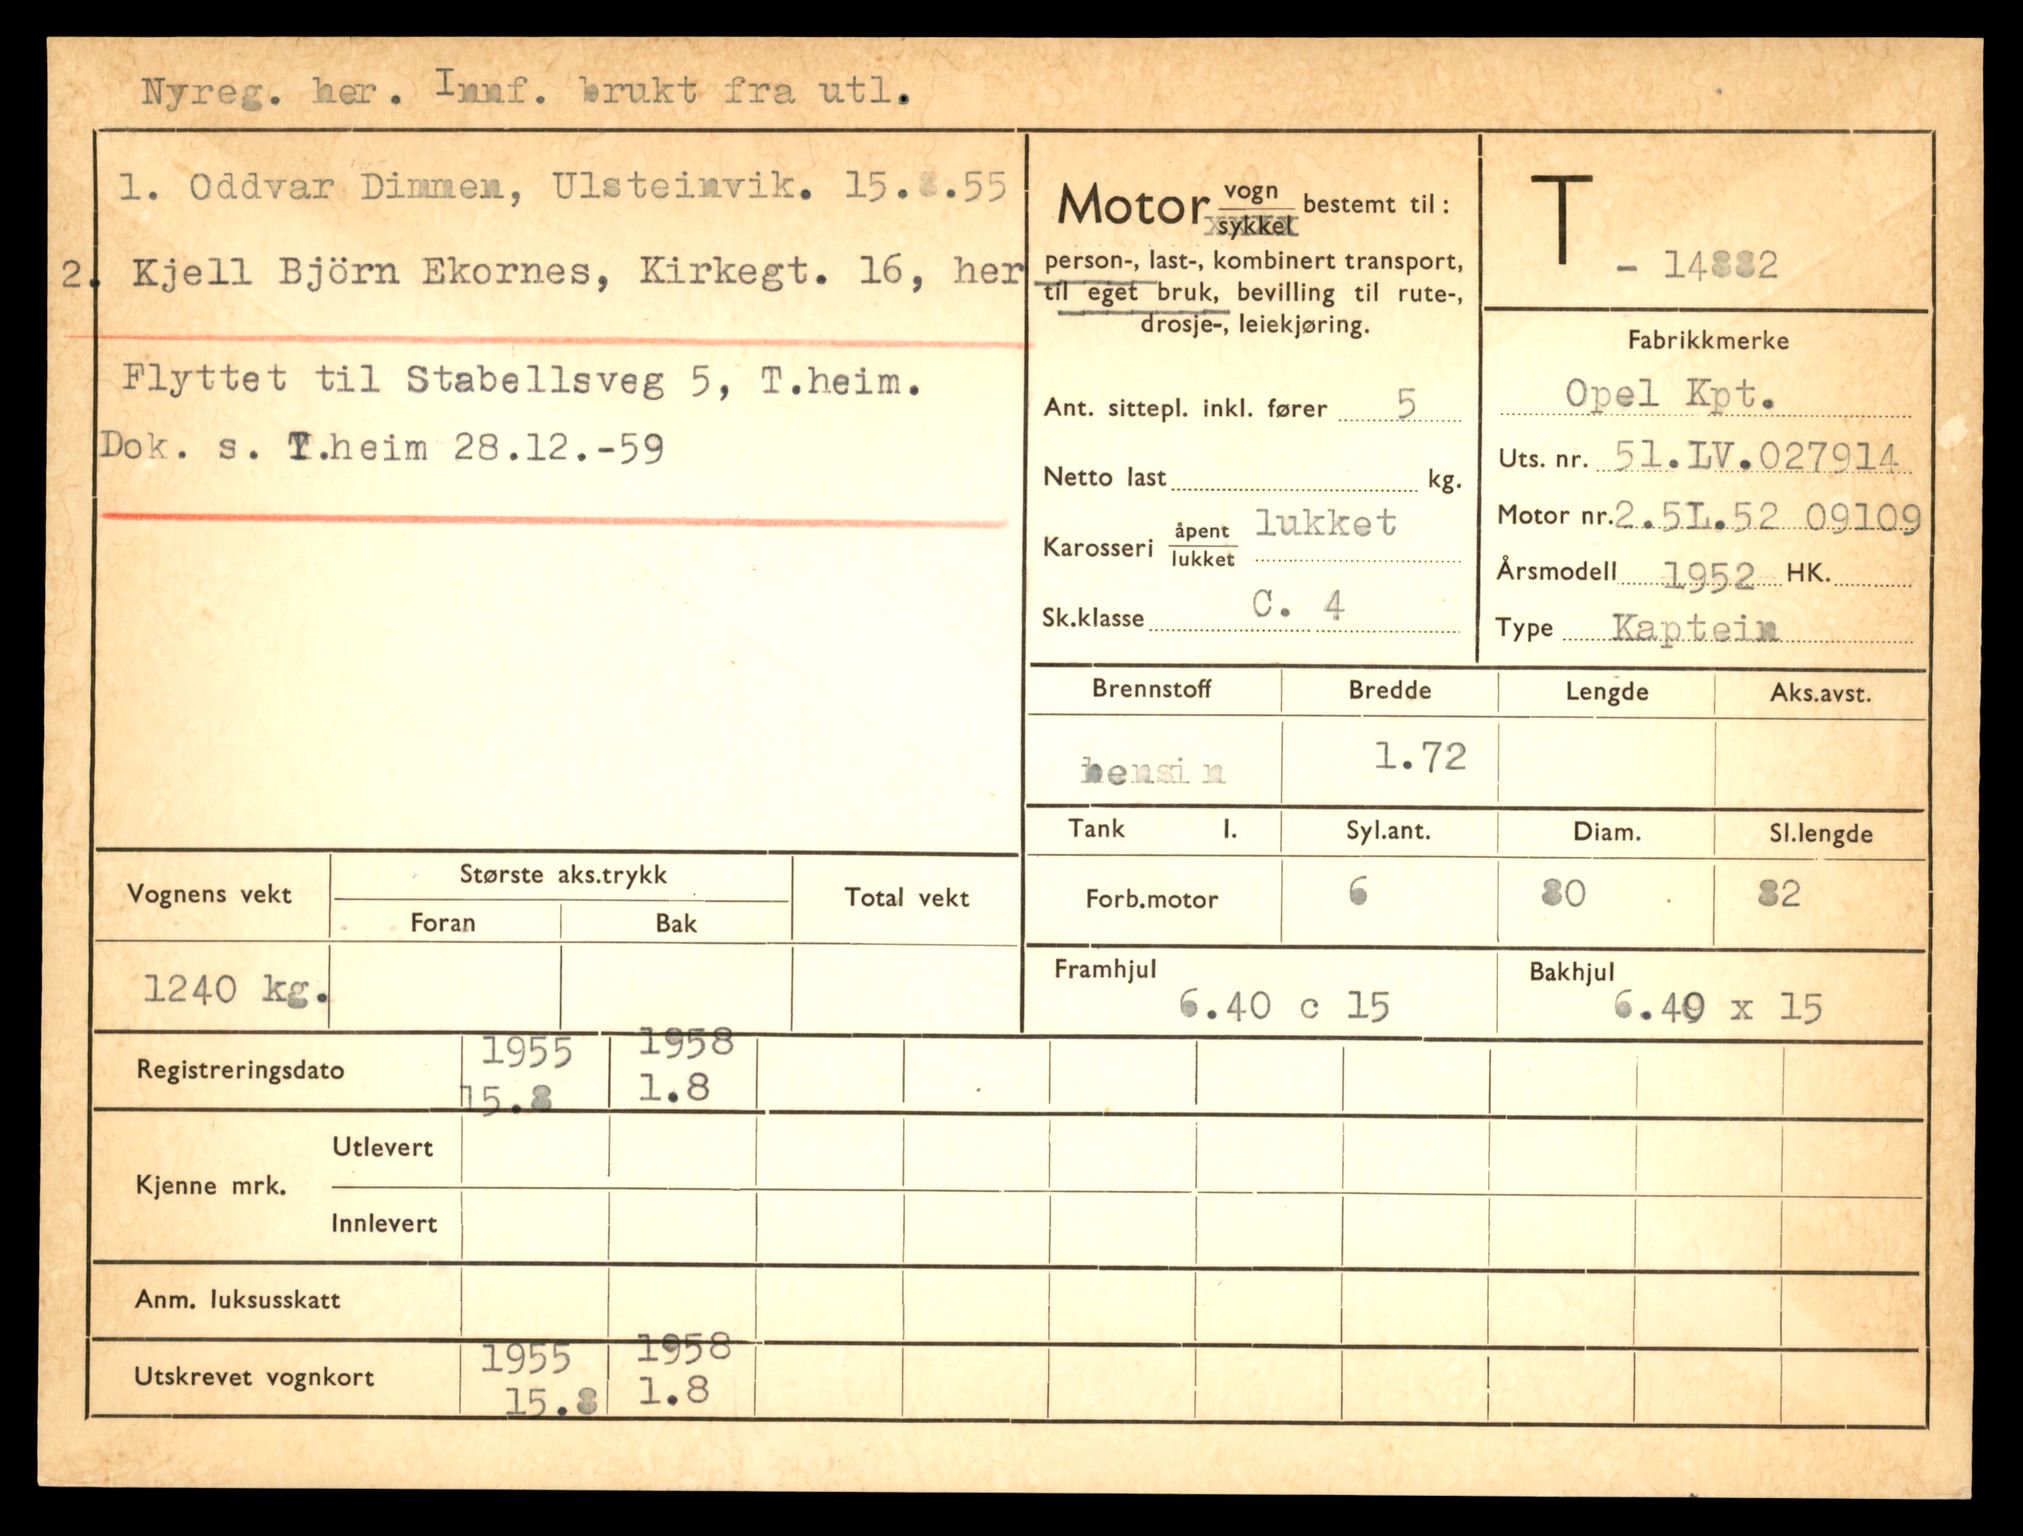 Nyreg. her. Innf. brukt fra utl.
1. Oddvar Dimmen, Ulsteinvik. 15.8.55
2. Kjell Björn Ekornes, Kirkegt. 16, her
Flyttet til Stabellsveg 5, T.heim.
Dok. s. T.heim 28.12.-59
Motor vogn/sykkel bestemt til:
person-, last-, kombinert transport,
til eget bruk, bevilling til rute-,
drosje-, leiekjøring.
Ant. sittepl. inkl. fører 5
Netto last kg.
Karosseri åpent/lukket lukket
Sk.klasse C. 4
T - 14882
Fabrikkmerke
Opel Kpt.
Uts. nr. 51.LV.027914
Motor nr. 2.5L.52 09109
Årsmodell 1952 HK.
Type Kaptein
Brennstoff Bredde Lengde Aks.avst.
bensin 1.72
Tank l. Syl.ant. Diam. Sl.lengde
Forb.motor 6 80 82
Framhjul Bakhjul
6.40 c 15 6.40 x 15
Vognens vekt Største aks.trykk Total vekt
Foran Bak
1240 kg.
Registreringsdato 1955 1958
15.8 1.8
Kjenne mrk. Utlevert
Innlevert
Anm. luksusskatt
Utskrevet vognkort 1955 1958
15.8 1.8